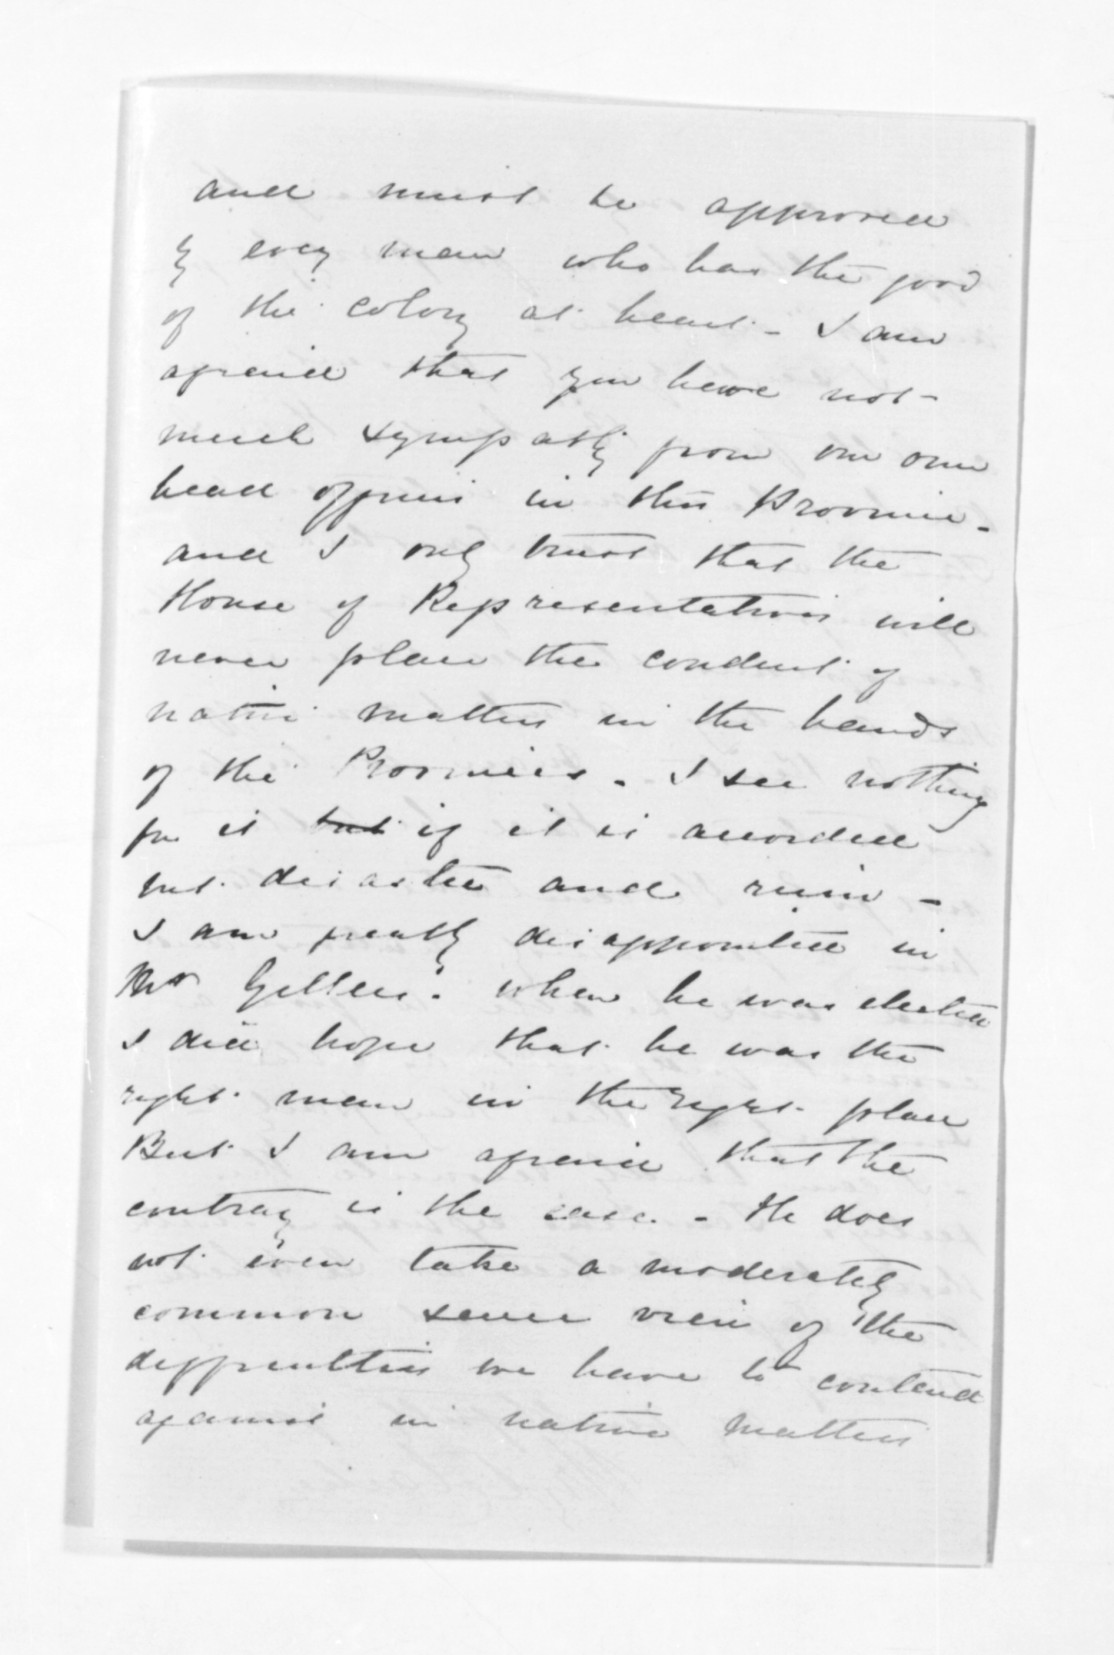 and must be approved
by every man who has the good
of the colony at heart - I am
afraid that you have not -
much sympathy from our own
head officers in this Province -
and I only trust that the
House of Representatives will
never place the conduct of
native matters in the hands
of the Provinces. I see nothing
for it but if it is accorded
but disaster and ruin -
I am greatly disappointed in
Mr when he was elected
I did hope that he was the
right man in the right place
But I am afraid that the
contrary is the case. - He does
not even take a moderately
common sense view of the
difficulties we have to contend
against in native matters